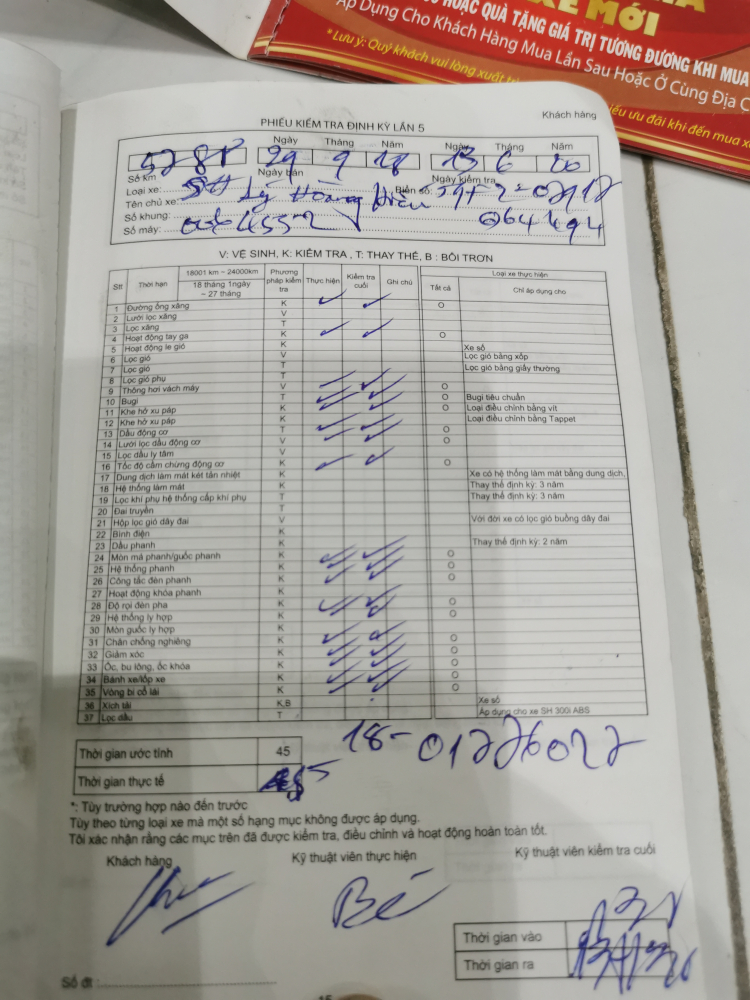 XE MỚI
HOẶC QUÀ TẶNG GIÁ TRỊ TƯƠNG ĐƯƠNG KHI MUA
Áp Dụng Cho Khách Hàng Mua Lần Sau Hoặc Ở Cùng Địa C
*Lưu ý: Quý khách vui lòng xuất
ưu đãi khi đến mua x
Khách hàng
PHIẾU KIỂM TRA ĐỊNH KỲ LẦN 5
Ngày Tháng Năm Ngày Tháng Năm
29 9 18 13 6 20
Số km Ngày bán Ngày kiểm tra
Loại xe: SH Biển số:
Tên chủ xe: Lý Hoàng
Số khung: 064494
Số máy:
V: VỆ SINH, K: KIỂM TRA , T: THAY THẾ, B : BÔI TRƠN
Stt Thời hạn 18001 km ~ 24000km Phương pháp kiểm tra Thực hiện Kiểm tra cuối Ghi chú Loại xe thực hiện
18 tháng 1ngày ~ 27 tháng Tất cả Chỉ áp dụng cho
1 Đường ống xăng K O
2 Lưới lọc xăng V
3 Lọc xăng T
4 Hoạt động tay ga K O
5 Hoạt động le gió K Xe số
6 Lọc gió V Lọc gió bằng xốp
7 Lọc gió T Lọc gió bằng giấy thường
8 Lọc gió phụ T
9 Thông hơi vách máy V O
10 Bugi T O Bugi tiêu chuẩn
11 Khe hở xu páp K O Loại điều chỉnh bằng vít
12 Khe hở xu páp K Loại điều chỉnh bằng Tappet
13 Dầu động cơ T O
14 Lưới lọc dầu động cơ V O
15 Lọc dầu ly tâm V
16 Tốc độ cầm chừng động cơ K O
17 Dung dịch làm mát két tản nhiệt K Xe có hệ thống làm mát bằng dung dịch,
18 Hệ thống làm mát K Thay thế định kỳ: 3 năm
19 Lọc khí phụ hệ thống cấp khí phụ T Thay thế định kỳ: 3 năm
20 Đai truyền T
21 Hộp lọc gió dây đai V Với đời xe có lọc gió buồng dây đai
22 Bình điện K
23 Dầu phanh K Thay thế định kỳ: 2 năm
24 Mòn má phanh/guốc phanh K O
25 Hệ thống phanh K O
26 Công tắc đèn phanh K O
27 Hoạt động khóa phanh K
28 Độ rọi đèn pha K O
29 Hệ thống ly hợp K O
30 Mòn guốc ly hợp K
31 Chân chống nghiêng K O
32 Giảm xóc K O
33 Ốc, bu lông, ốc khóa K O
34 Bánh xe/lốp xe K O
35 Vòng bi cổ lái K O
36 Xích tải K,B Xe số
37 Lọc dầu T Áp dụng cho xe SH 300i ABS
Thời gian ước tính 45
Thời gian thực tế
*: Tùy trường hợp nào đến trước
Tùy theo từng loại xe mà một số hạng mục không được áp dụng.
Tôi xác nhận rằng các mục trên đã được kiểm tra, điều chỉnh và hoạt động hoàn toàn tốt.
Khách hàng Kỹ thuật viên thực hiện Kỹ thuật viên kiểm tra cuối
Bé
Thời gian vào
Thời gian ra
Số đt :